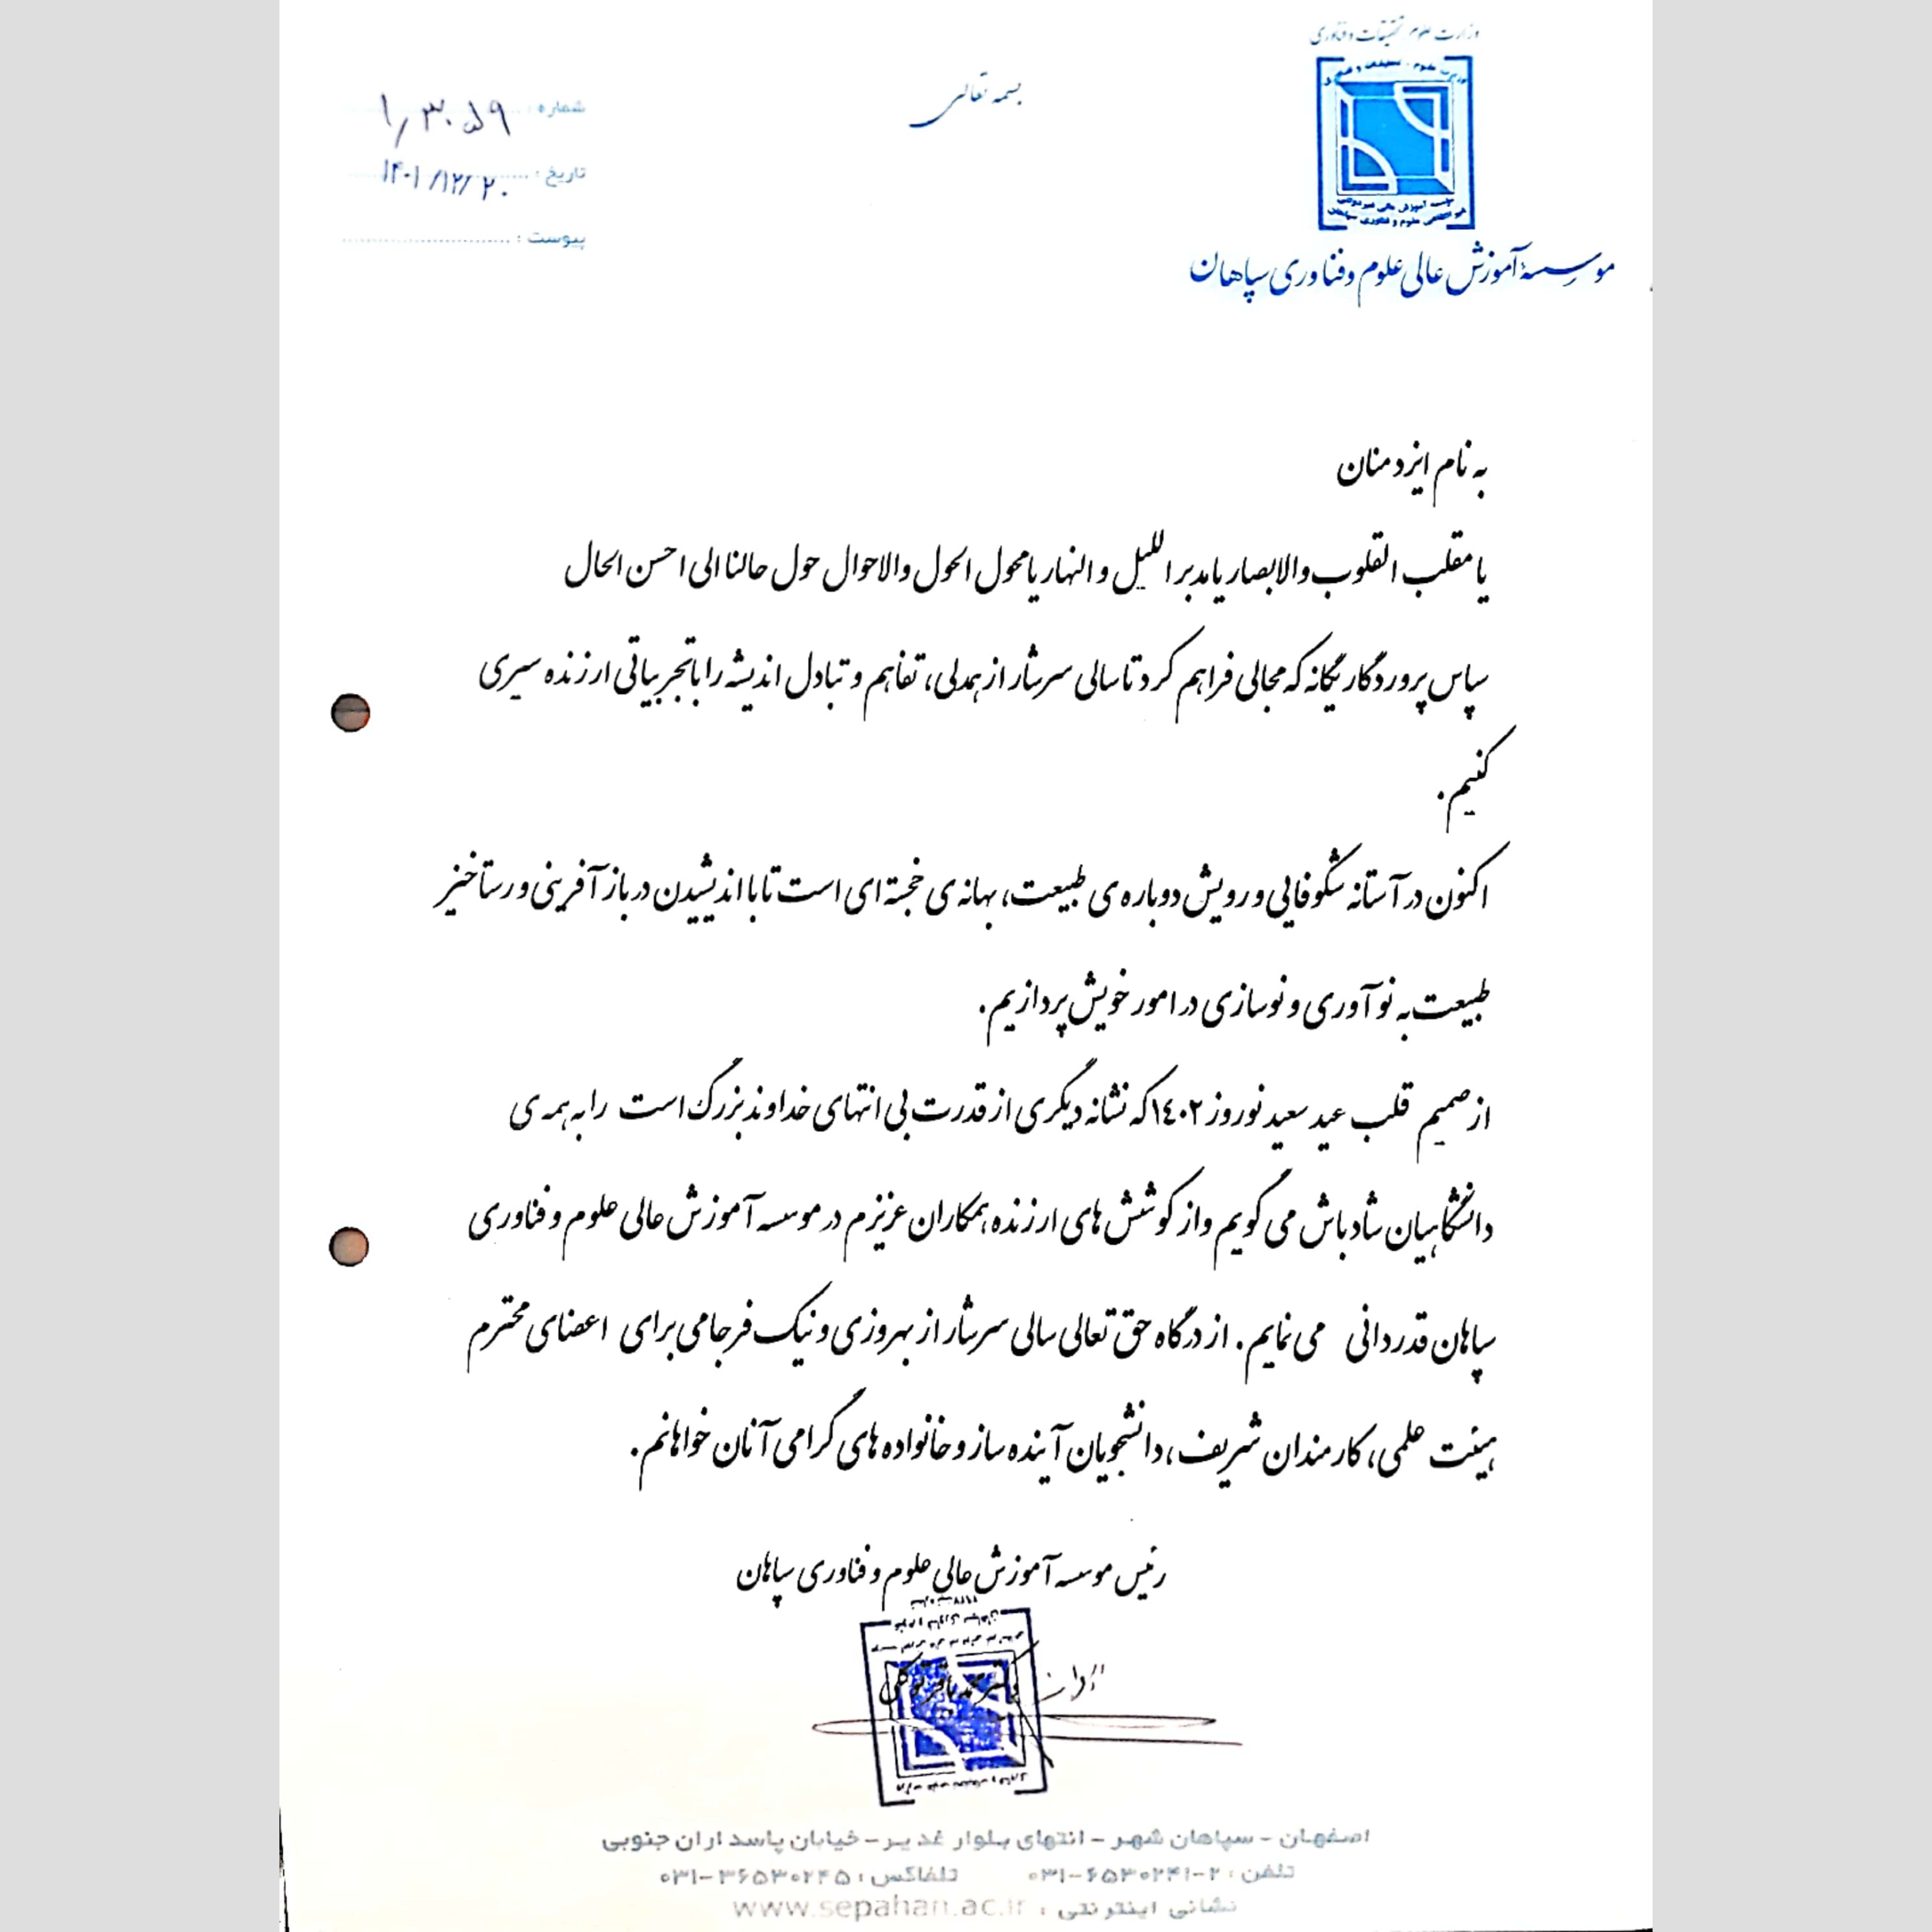 وزارت علوم تحقیقات و فناوری
بسمه تعالی
شماره : ۱/۳۰۵۹
تاریخ : ۱۴۰۱/۱۲/۲۰
پیوست :
موسسهٔ آموزش عالی علوم و فناوری سپاهان
به نام ایزد منان
یا مقلب القلوب والابصار یا مدبر اللیل و النهار یا محول الحول والاحوال حول حالنا الی احسن الحال
سپاس پروردگار یگانه که مجالی فراهم کرد تا سالی سرشار از همدلی، تفاهم و تبادل اندیشه را با تجربیاتی ارزنده سپری
کنیم.
اکنون در آستانه شکوفایی و رویش دوباره ی طبیعت، بهانه ی خجسته ای است تا با اندیشیدن در باز آفرینی و رستاخیز
طبیعت به نو آوری و نوسازی در امور خویش پردازیم.
از صمیم قلب عید سعید نوروز ۱٤۰۲ که نشانه دیگری از قدرت بی انتهای خداوند بزرگ است را به همه ی
دانشگاهیان شادباش می گویم و از کوشش های ارزنده همکاران عزیزم در موسسه آموزش عالی علوم و فناوری
سپاهان قدردانی می نمایم. از درگاه حق تعالی سالی سرشار از بهروزی و نیک فرجامی برای اعضای محترم
هیئت علمی، کارمندان شریف، دانشجویان آینده ساز و خانواده های گرامی آنان خواهانم.
رئیس موسسه آموزش عالی علوم و فناوری سپاهان
اصفهان - سپاهان شهر - انتهای بلوار غدیر - خیابان پاسداران جنوبی
تلفن : ۲-۰۳۱-۶۵۳۰۲۴۱ تلفاکس : ۰۳۱-۳۶۵۳۰۲۴۵
نشانی اینترنتی : www.sepahan.ac.ir